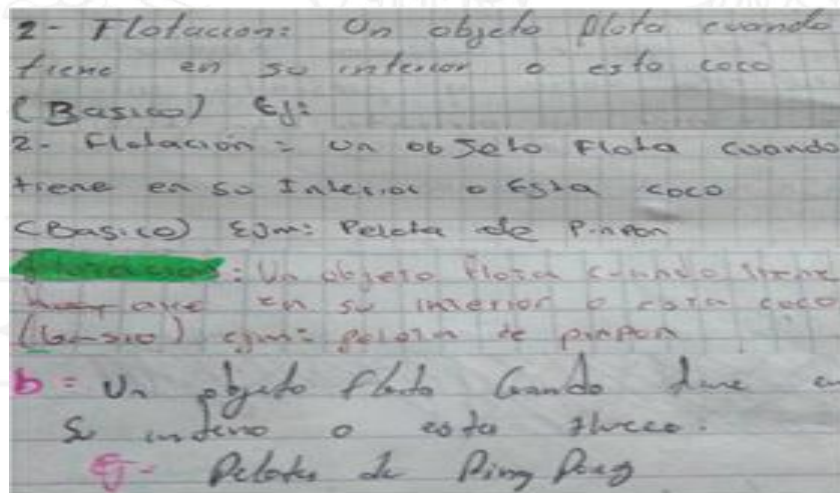 2- Flotacion: Un objeto flota cuando
tiene en su interior o esta coco
(Basico) Ej:
2- Flotación = un obJeto Flota cuando
tiene en su Interior o Esta coco
(Basico) EJm: Pelota de Pinpon
: Un objeto flota cuando tiene
aire en su interior o esta coco
ejm: pelota de pinpon
b = Un objeto flota Cuando tiene
Su interio o esta
Ej- Pelota de Ping Pong